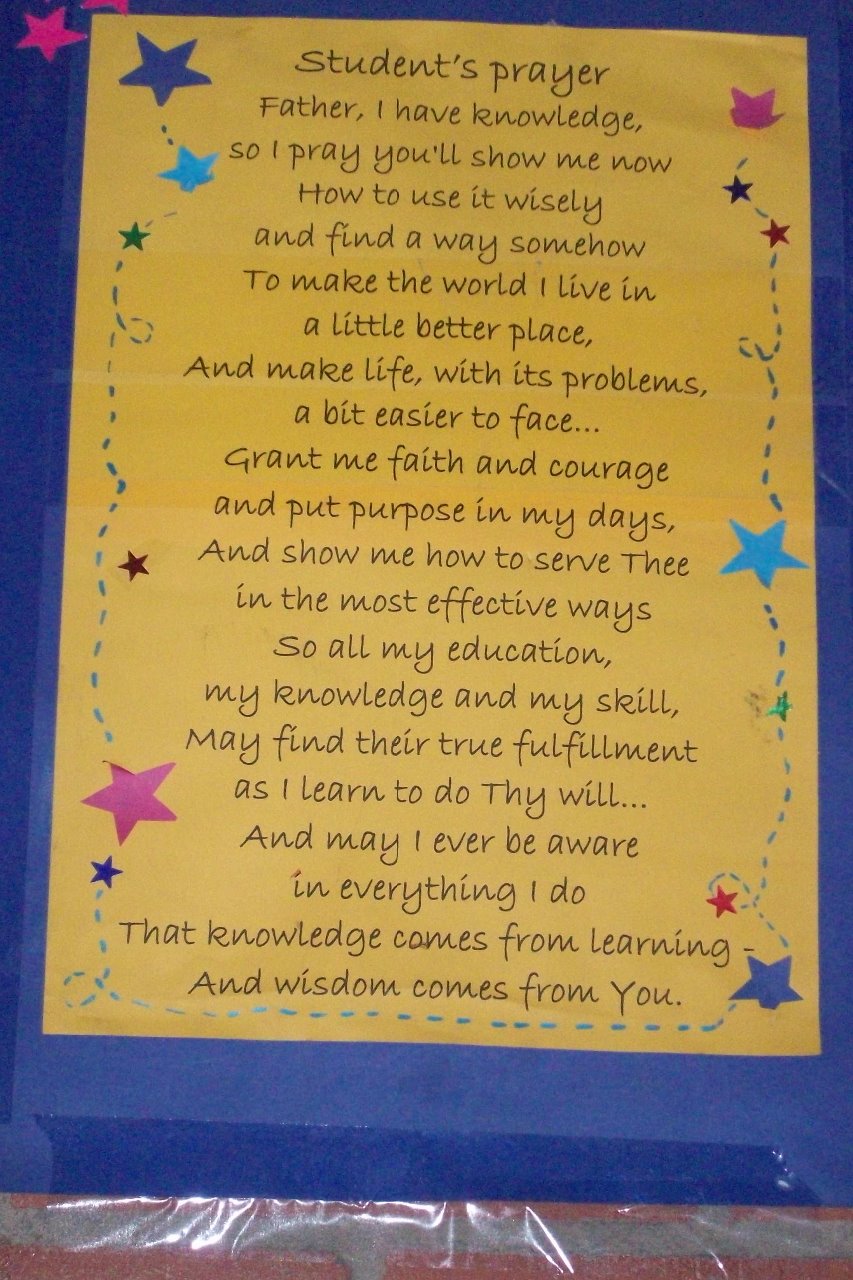 Student's prayer
Father, I have knowledge,
so I pray you'll show me now
How to use it wisely
and find a way somehow
To make the world I live in
a little better place,
And make life, with its problems,
a bit easier to face...
Grant me faith and courage
and put purpose in my days,
And show me how to serve Thee
in the most effective ways
So all my education,
my knowledge and my skill,
May find their true fulfillment
as I learn to do Thy will...
And may I ever be aware
in everything I do
That knowledge comes from learning -
And wisdom comes from You.